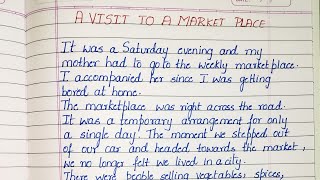 A VISIT TO A MARKET PLACE
It was a Saturday evening and my
mother had to go to the weekly marketplace.
I accompanied her since I was getting
bored at home.
The marketplace was right across the road.
It was a temporary arrangement for only
a single day. The moment we stepped out
of our car and headed towards the market,
we no longer felt we lived in a city.
There were people selling vegetables, spices,